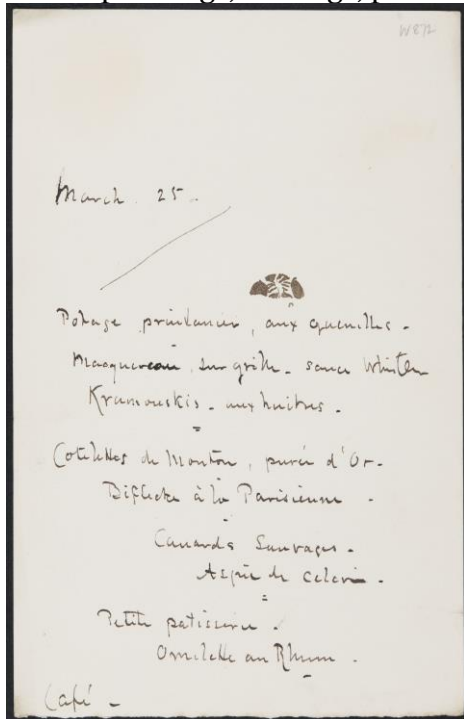 W 872
March. 25.
Potage printanier, aux quenelles.
Macquereau, sur grille. sauce Whistler
Kromouskis. aux huitres.
Cotelettes de Mouton, purée d'Or.
Biftecks à la Parisienne.
Canards Sauvages.
Aspic de celeri.
Petite patisserie.
Omelette au Rhum.
Café.